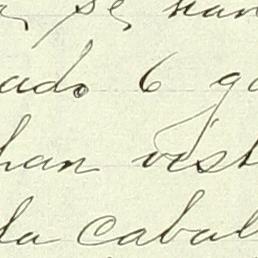 se han
ado 6 ga
han vist
la cabal